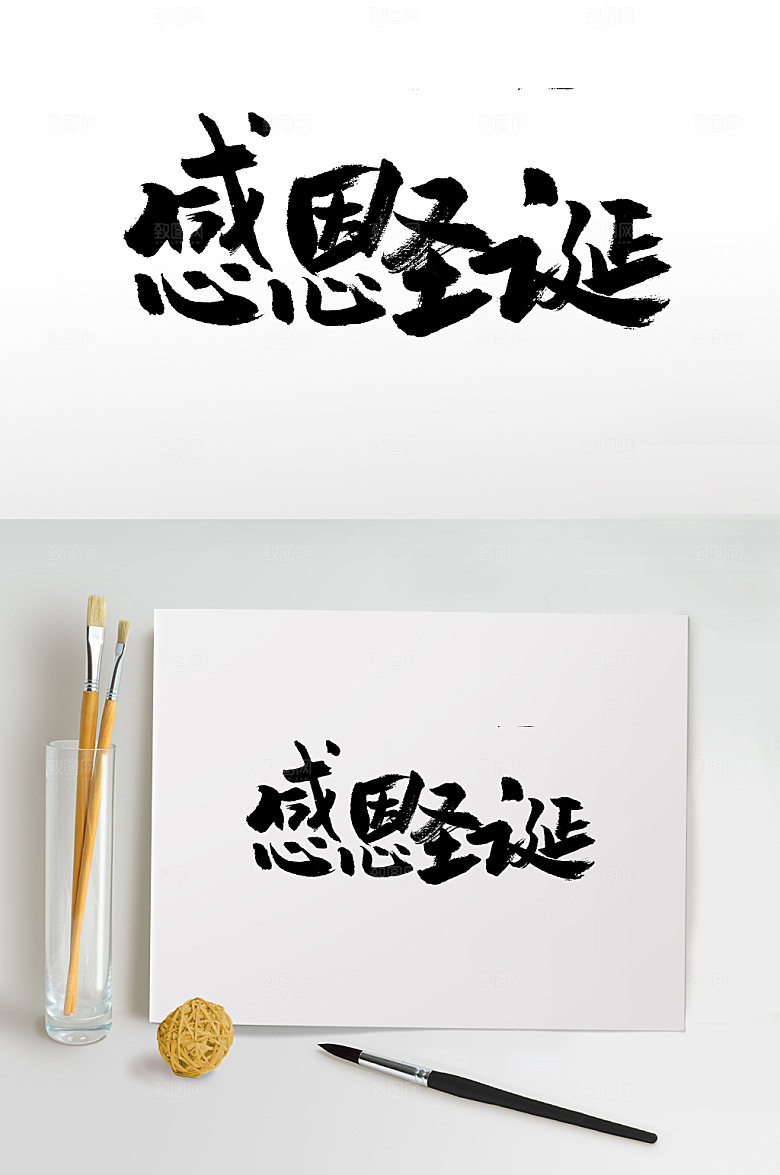 感恩圣诞
感恩圣诞